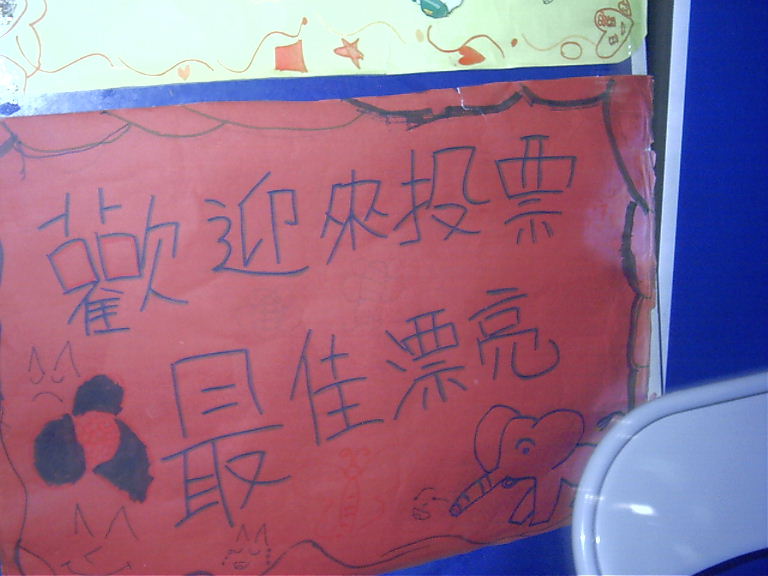 歡迎來投票
最佳漂亮